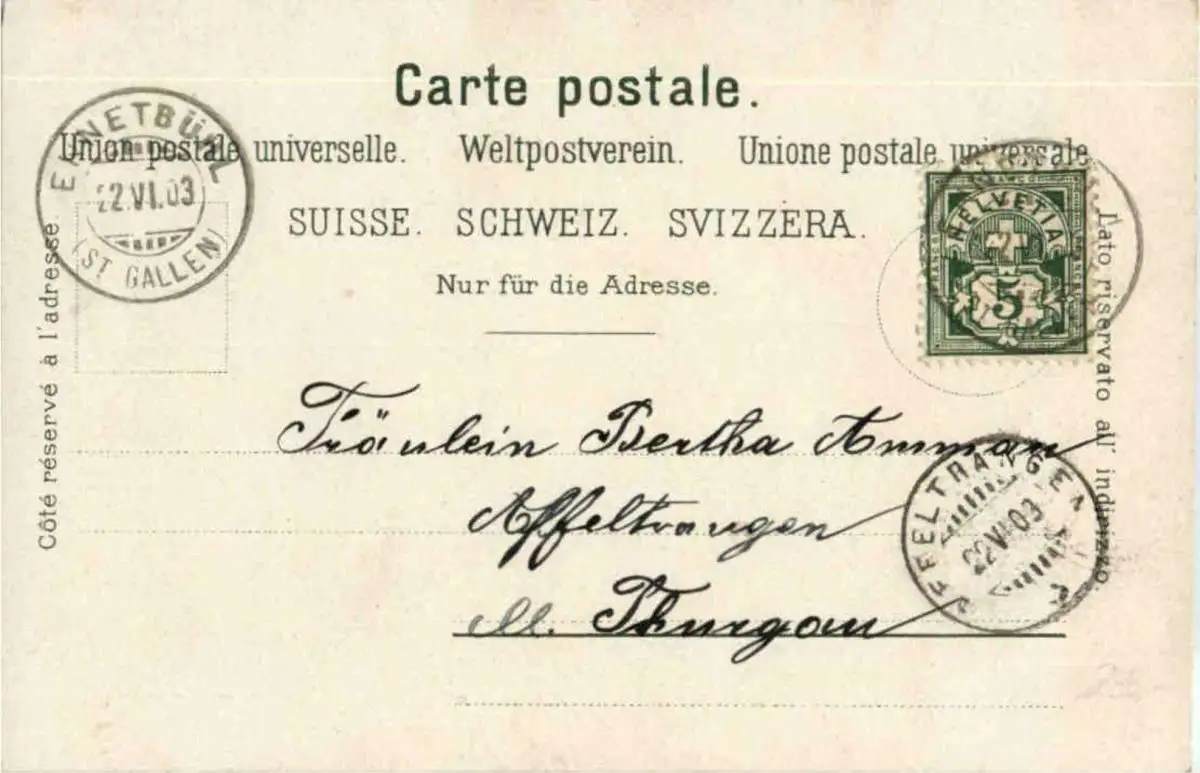 Carte postale.
Union postale universelle. Weltpostverein. Unione postale universale
SUISSE. SCHWEIZ. SVIZZERA.
Nur für die Adresse.
Côté réservé à l'adresse.
Lato riservato all' indirizzo.
ENNETBÜHL
22.VI.03
(ST GALLEN)
FRANCO
HELVETIA
5
Fräulein Bertha Amman
Affeltrangen
Thurgau
AFFELTRANGEN
22.VI.03